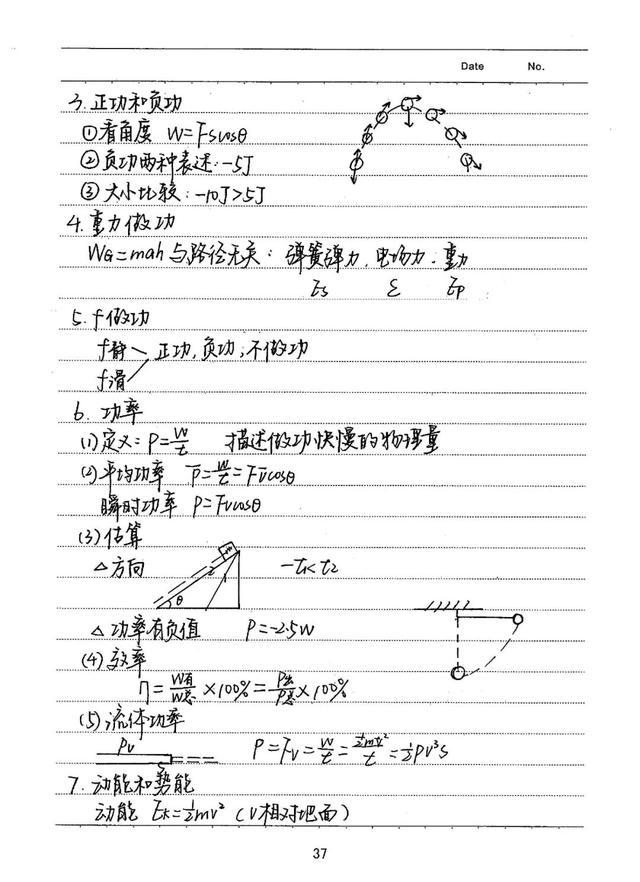 Date No.
3. 正功和负功
① 看角度 W=Fscosθ
② 负功两种表述: -5J
③ 大小比较: -10J>5J
4. 重力做功
WG=mgh 与路径无关: 弹簧弹力、电场力、重力
Es ε Ep
5. f做功
f静 正功,负功,不做功
f滑
6. 功率
(1) 定义: P=W/t 描述做功快慢的物理量
(2) 平均功率 P̄=W/t=Fv̄cosθ
瞬时功率 P=Fvcosθ
(3) 估算
△方向 -t1<t2
θ 2 1
△ 功率有负值 P=-2.5W
(4) 效率
η=W有/W总×100%=P出/P总×100%
(5) 流体功率
ρv
S
P=Fv=W/t=½mv²/t=½ρv³s
7. 动能和势能
动能 Ek=½mv² (v相对地面)
37